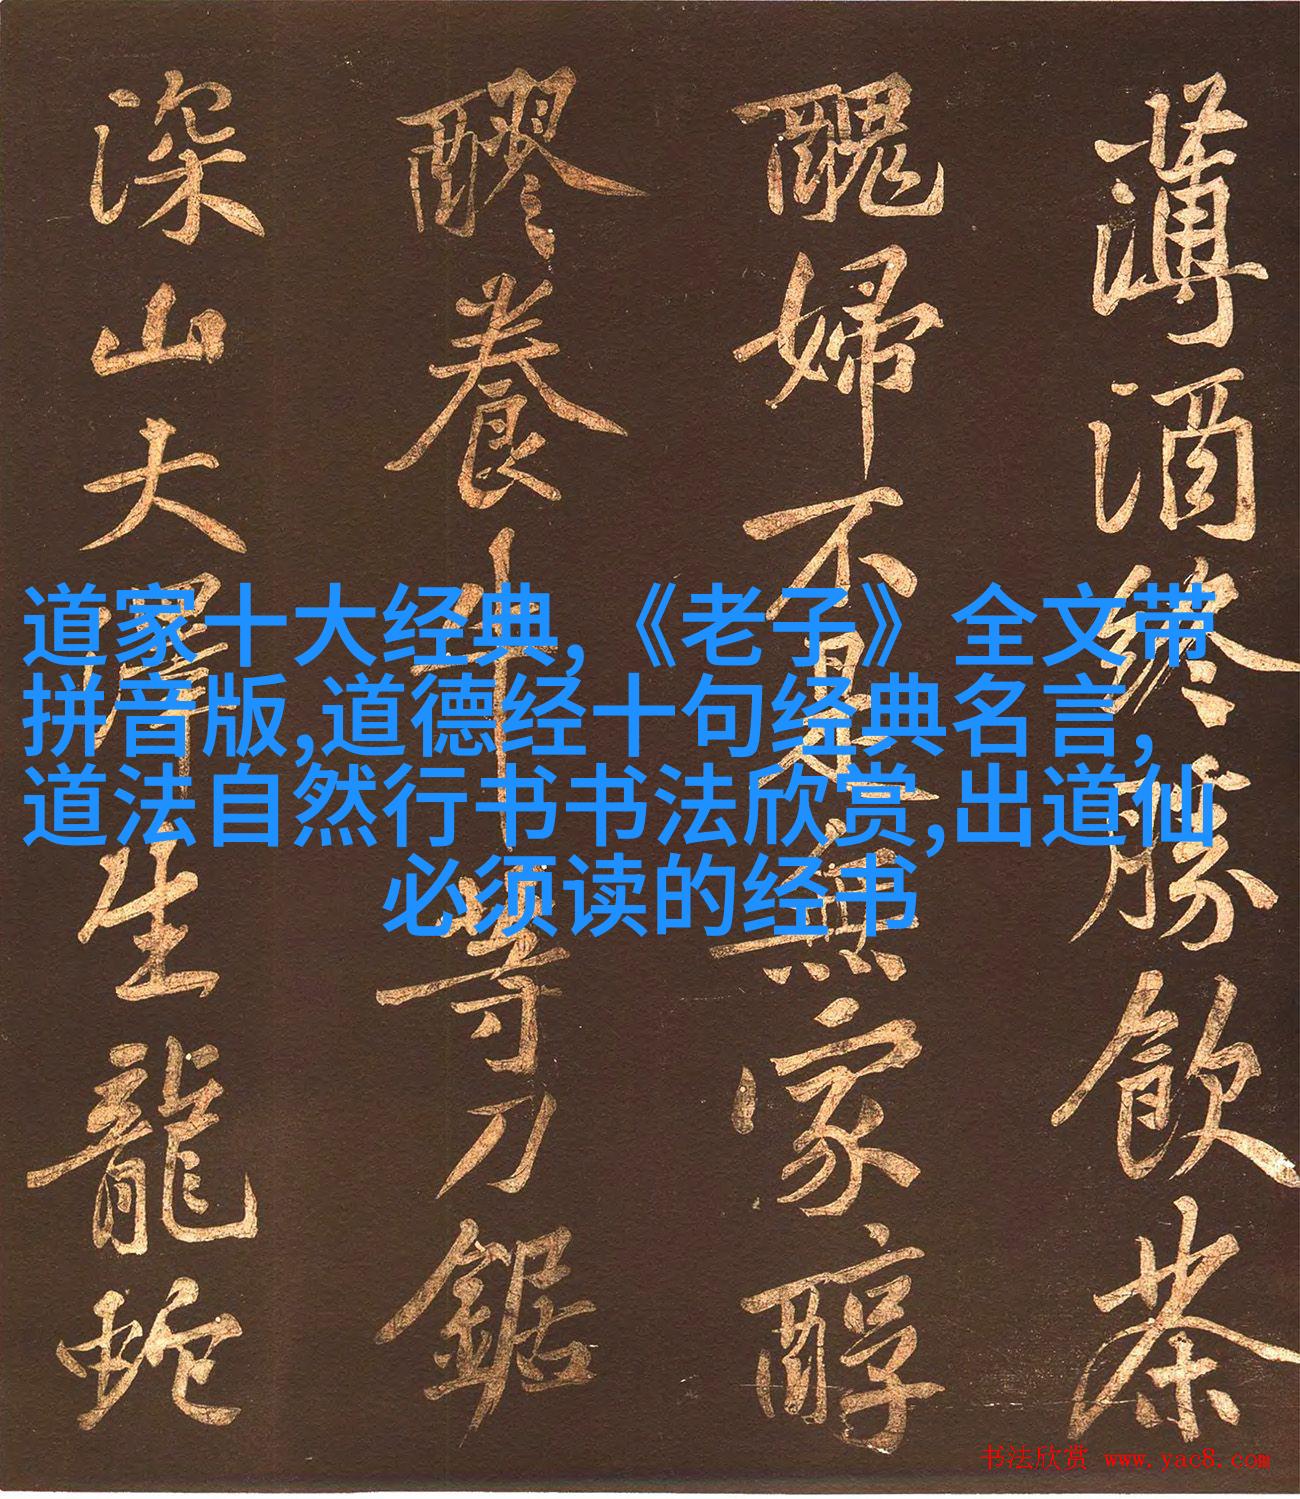 薄酒終勝飲茶
醜婦不是無家醇
醪養牛等刀鋸
深山大澤生龍蛇
道家十大经典,《老子》全文带
拼音版,道德经十句经典名言,
道法自然行书书法欣赏,出道仙
必须读的经书
书法欣赏 www.yac8.com